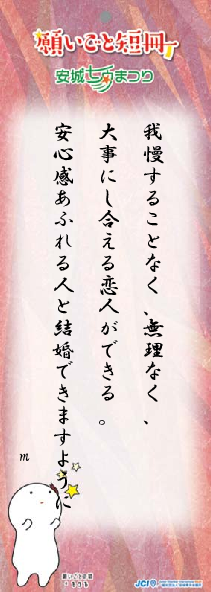 願いごと短冊
安城七夕まつり
我慢することなく、無理なく、
大事にし合える恋人ができる。
安心感あふれる人と結婚できますように
m
願いごと短冊
JCI